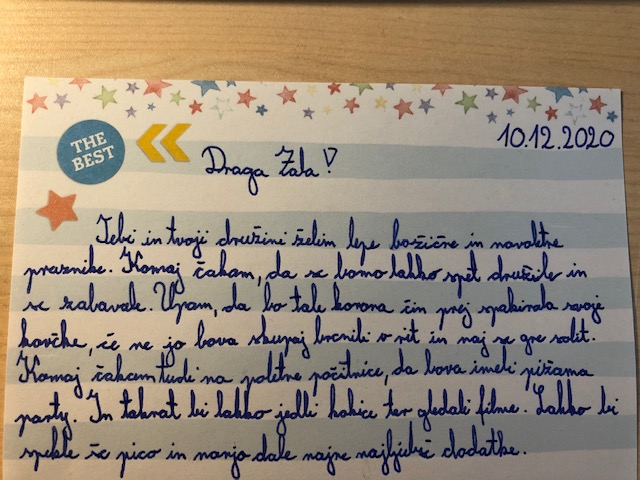 10.12.2020
THE
BEST
Draga Zala!
Tebi in tvoji družini želim lepe božične in novoletne
praznike. Komaj čakam, da se bomo lahko spet družile in
se zabavale. Upam, da bo tale korona čin prej spakirala svoje
kovčke, če ne jo bova skupaj brcnili v rit in naj se gre solit.
Komaj čakam tudi na poletne počitnice, da bova imeli pižama
party. In takrat bi lahko jedli kokice ter gledali filme. Lahko bi
spekle še pico in nanjo dale najine najljubše dodatke.